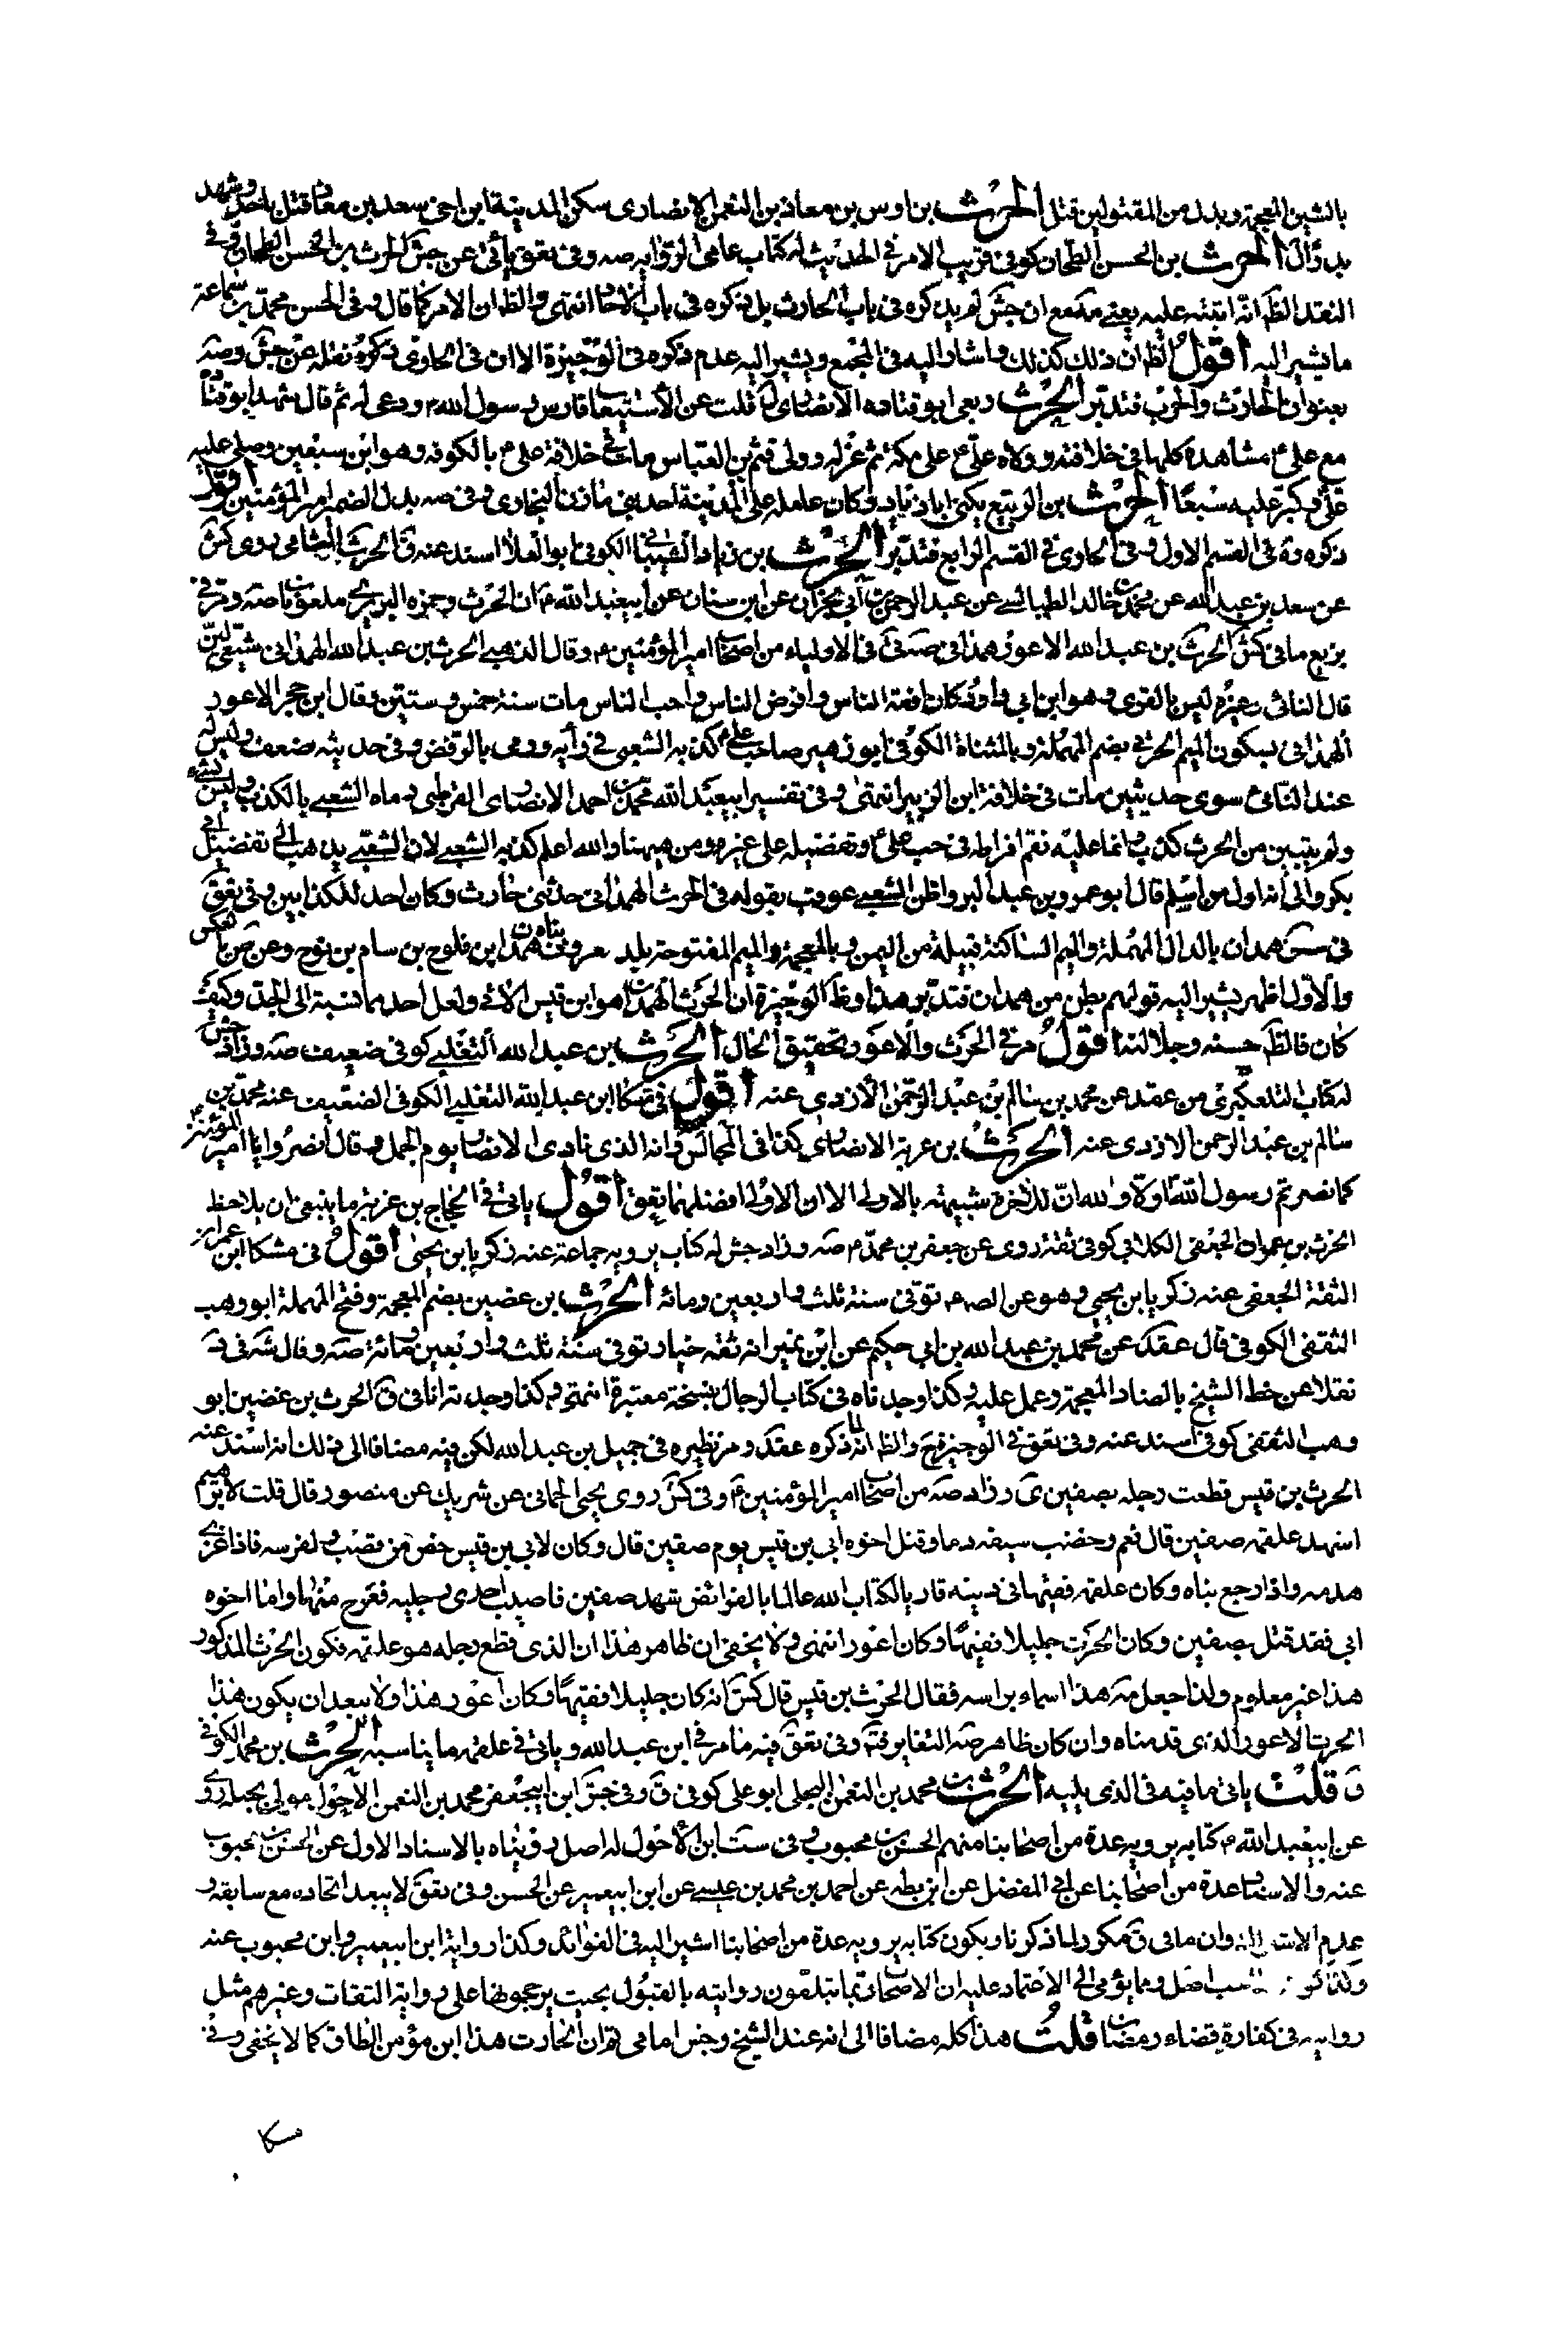 بالشين المعجمة وبدل من المقتولين قتل الحرث بن اوس بن معاذ بن النعمن الانصارى سكن المدينة ابن اخى سعد بن معاذ قتل باحد وشهد
بدرا ل الحرث بن الحسن الطحان كوفى قريب الامر فى الحديث له كتاب عامى الرواية صه وفى تعق يأتى عن جش الحرث بن الحسن الطحان وفى
النقد الظ انه اشتبه عليه يعنى مع ان جش لم يذكره فى باب الحارث بل ذكره فى باب الاحاد انتهى والظ ان الامر كما قال وفى الحسن محمد بن سماعة
ما يشير اليه اقول الظ ان ذلك كذلك واشار اليه فى المجمع ويشير اليه عدم ذكره فى الوجيزة الا ان فى الحاوى ذكره نقله عن جش وصه
بعنوان الحارث والحرب فتدبر الحرث ربعى ابو قتاده الانصارى ل قلت عن الاستيعاب فارس رسول الله ودعى له ثم قال شهد ابو قتادة
مع على ع مشاهده كلها فى خلافته وولاه على ع على مكة ثم عزله وولى قثم بن العباس مات فى خلافة على ع بالكوفه وهو ابن سبعين وصلى عليه
على وكبر عليه سبعا الحرث بن الربيع يكنى ابا زياد وكان عامله على المدينة احد بنى مازن النجارى وفى صه بدل الضمير امير المؤمنين اقول
ذكره فى القسم الاول وفى الحاوى فى القسم الرابع فتدبر الحرث بن زياد الشيبانى الكوفى ابو العلا اسند عنه ق الحرث الشامى روى كش
عن سعد بن عبد الله عن محمد بن خالد الطيالسى عن عبد الرحمن بن ابى نجران عن ابن سنان عن ابيعبد الله ع ان الحرث وحمزه البربرى ملعونان صه ومر فى
بزيع ما فى كش الحرث بن عبد الله الاعور همدانى صه وفى فى الاولياء من اصحاب امير المؤمنين ع وقال الذهبى الحرث بن عبد الله الهمدانى شيعى لين
قال النسائى وغيره ليس بالقوى وهو ابن ابى داود كان افقه الناس وافرض الناس واحب الناس مات سنة خمس وستين وقال ابن حجر الاعور
الهمدانى بسكون الميم الحرثى بضم المهملة وبالمثناة الكوفى ابو زهير صاحب على ع كذبه الشعبى فى رأيه ورمى بالرفض وفى حديثه ضعف وليس له
عند النسائى سوى حديثين مات فى خلافة ابن الزبير انتهى وفى تفسير ابيعبد الله محمد بن احمد الانصارى القرطبى رماه الشعبى بالكذب وليس بشىء
ولم يتبين من الحرث كذب انما عليه نقم افراطه فى حب على ع وتفضيله على غيره ومن هيهنا والله اعلم كذبه الشعبى لان الشعبى يذهب الى تفضيل ابى
بكر والى انه اول من اسلم قال ابو عمرو بن عبد البر واظن الشعبى عوقب بقوله فى الحرث الهمدانى حدثنى حارث وكان احد الكذابين وفى تعق
فى همدان بالدال المهملة والميم الساكنة قبيلة من اليمن وبالمعجمة والميم المفتوحة بلد معروف بناه همدان بن فلوج بن سام بن نوح وعن بالعكس
والاول اظهر يشير اليه قولهم بطن من همدان فتدبر هذا وظ الوجيزة ان الحرث الهمدانى هو ابن قيس الاتى ولعل احدهما نسبة الى الجد وكيف
كان فالظ حسنه وجلالته اقول مر فى الحرث والاعور تحقيق الحال الحرث بن عبد الله التغلبى كوفى ضعيف صه وزاد جش
له كتاب التلعكبرى عن عقد عن محمد بن سالم بن عبد الرحمن الازدى عنه اقول فى مشكا ابن عبد الله التغلبى الكوفى الضعيف عنه محمد بن
سالم بن عبد الرحمن الازدى عنه الحرث بن غزية الانصارى كذا فى المجالس وانه الذى نادى الانصار يوم الجمل وقال انصروا يا امير المؤمنين
كما نصرتم رسول الله اولا والله ان الاخرة شبيهة بالاولى الا ان الاولى افضلهما تعق اقول يأتى فى الحجاج بن غزية ما ينبغى ان يلاحظ
الحرث بن عمران الجعفى الكلابى كوفى ثقة روى عن جعفر بن محمد ع صه وزاد جش له كتاب يرويه جماعة عنه زكريا بن يحيى اقول فى مشكا ابن عمران
الثقة الجعفى عنه زكريا بن يحيى وهو عن الصه ع توفى سنة ثلث واربعين ومائه الحرث بن غضين بضم المعجمة وفتح المهملة ابو وهب
الثقفى الكوفى قال عقد عن محمد بن عبد الله بن ابى حكيم عن ابن نمير انه ثقه خيار توفى سنة ثلث واربعين ومائة صه وقال شه فى د
نقلا عن خط الشيخ بالضاد المعجمة وعمل عليه وكذا وجدناه فى كتاب الرجال بنسخة معتبرة انتهى وكذا وجدته انا فى ق الحرث بن غضين ابو
وهب الثقفى كوفى اسند عنه وفى تعق فى الوجيزة ح والظ انه لما ذكره عقد ومر نظيره فى جميل بن عبد الله لكن فيه مضافا الى ذلك انه اسند عنه
الحرث بن قيس قطعت رجله بصفين ى وزاد صه من اصحاب امير المؤمنين ع وفى كش روى يحيى الحمانى عن شريك عن منصور قال قلت لابرهيم
اشهد علقمه صفين قال نعم وخضب سيفه دما وقتل اخوه ابى بن قيس يوم صفين قال وكان لابى بن قيس خص من قصب ولفرسه فاذا غزى
هدمه واذا رجع بناه وكان علقمه فقيها فى دينه قاريا لكتاب الله عالما بالفرائض شهد صفين فاصيب احدى رجليه فعرج منها واما اخوه
ابى فقد قتل بصفين وكان الحرث جليلا فقيها وكان اعور انتهى ولا يخفى ان ظاهر هذا ان الذى قطع رجله هو علقمه فكون الحرث المذكور
هذا غير معلوم ولذا جعل مه هذا اسماء براسه فقال الحرث بن قيس قال كش انه كان جليلا فقيها وكان اعور هذا ولا يبعد ان يكون هذا
الحرث الاعور الذى قدمناه وان كان ظاهر صه التغاير فتم وفى تعق فيه ما مر فى ابن عبد الله ويأتى فى علقمه ما يناسبه الحرث بن محمد الكوفى
ق قلت يأتى ما فيه فى الذى يليه الحرث بن محمد بن النعمن البجلى ابو على كوفى ق وفى جش ابن ابيجعفر محمد بن النعمن الاحول مولى بجيلة روى
عن ابيعبد الله ع كتابه يرويه عدة من اصحابنا منهم الحسن بن محبوب وفى ست ابن الاحول له اصل رويناه بالاسناد الاول عن الحسن بن محبوب
عنه والاسناد عدة من اصحابنا عن ابى المفضل عن ابن بطه عن احمد بن محمد بن عيسى عن ابن ابيعمير عن الحسن وفى تعق لا يبعد اتحاده مع سابقه و
عدم وان ما فى ق مكرر لما ذكرنا ويكون كتابه يرويه عدة من اصحابنا اشير اليه فى الفوائد وكذا رواية ابن ابيعمير وابن محبوب عنه
اصل ومما يؤمى الى الاعتماد عليه ان الاصحاب ربما يتلقون روايته بالقبول بحيث يرجحونها على رواية الثقات وغيرهم مثل
روايته فى كفارة قضاء رمضان قلت هذا كله مضافا الى انه عند الشيخ وجش امامى ثم ان الحارث هذا ابن مؤمن الطاق كما لا يخفى وفى
مشكا